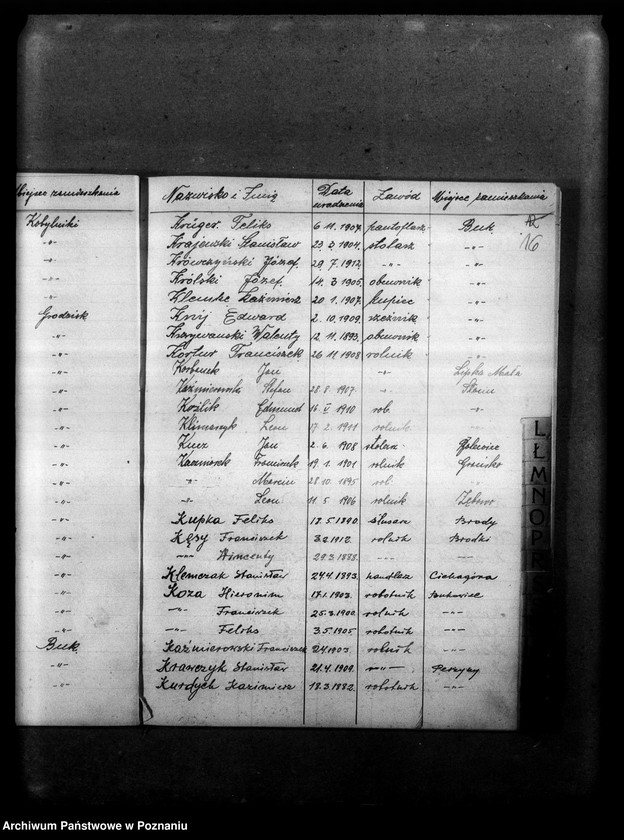 Miejsce zamieszkania
Kobylniki
-"-
-"-
-"-
-"-
Grodzisk
-"-
-"-
-"-
-"-
-"-
-"-
-"-
-"-
-"-
-"-
-"-
-"-
-"-
-"-
-"-
-"-
-"-
Buk
-"-
-"-
Nazwisko i Imię Data urodzenia Zawód Miejsce zamieszkania
16
Krüger Feliks 6.11.1907. pantoflarz Buk
Krajewski Stanisław 1904. stolarz -"-
Krówczyński Józef 29.7.1912. -"- -"-
Królski Józef 14.3.1905. obuwnik -"-
Klemke Kazimierz 20.1.1907. kupiec -"-
Knij Edward 2.10.1909. rzeźnik -"-
Walenty 12.11.1893. obuwnik -"-
Kortus Franciszek 26.11.1908 rolnik -"-
Korbanek Jan -"- Lipka Mała
Kaźmierowski Stefan 28.8.1907. -"-
Koźlik Edmund 16.V.1910 rob. -"-
Klimaszyk Leon 17.2.1911 rolnik -"-
Kucz Jan 2.6.1908 stolarz
Kaczmarek Franciszek 19.1.1901 rolnik Grońsko
-"- Marcin 28.10.1895 rob. -"-
-"- Leon 11.5.1906 rolnik Zębowo
Kupka Feliks 17.5.1890. ślusarz Brody
Kęsy Franciszek 1912. rolnik Brodki
-"- Wincenty 29.3.1888. -"- -"-
Klemczak Stanisław 24.4.1893. handlarz Cichagóra
Koza Hieronim 17.1.1903. robotnik Bukowiec
-"- Franciszek 25.3.1900. rolnik -"-
-"- Feliks 3.5.1905. robotnik -"-
Kaźmierowski Franciszek 1903. rolnik -"-
Krawczyk Stanisław 21.4.1909. -"- Perzyny
Kurdych Kazimierz 18.3.1882. robotnik -"-
L Ł M N O P R S
Archiwum Państwowe w Poznaniu